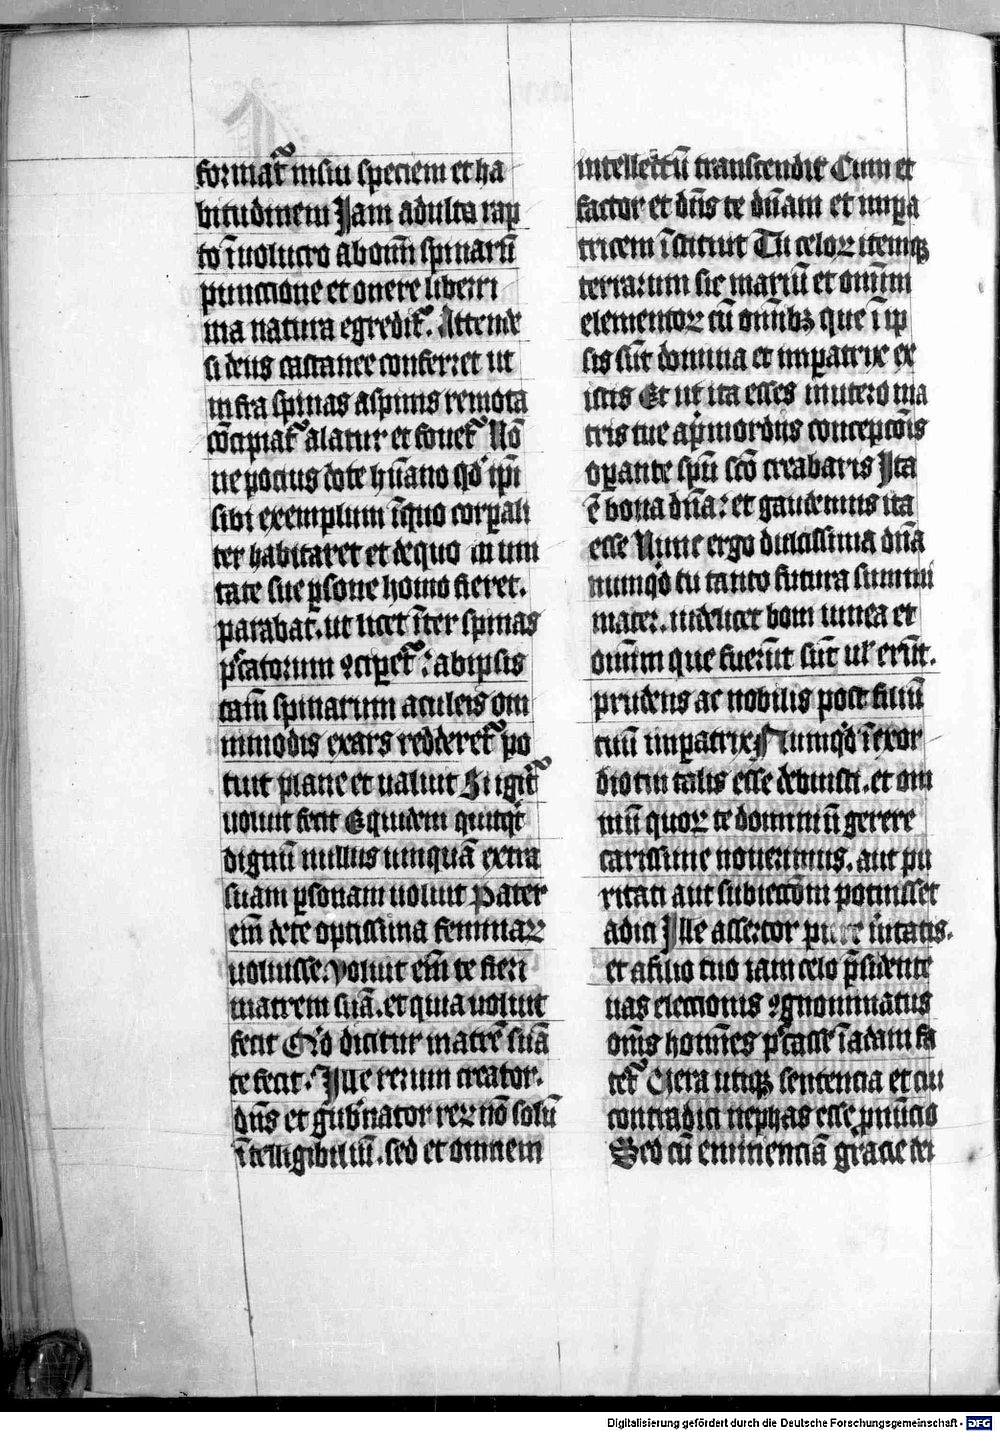 format᷑ in sui speciem et ha
bitudinem Jam adulta rup
to īuolucro ab om̄i spinarū
punctione et onere liberri
ma natura egredit᷑. Attende
si deus castanee conferret ut
infra spinas a spinis remota
cōcipiat᷑ alatur et fouet᷑ Nō
ne pocius dote hūano qd̛ ip̄i
sibi exemplum ī quo corꝑali
ter habitaret et de quo in uni
tate sue ꝑsone homo fieret.
parabat. ut licet īter spinas
pc̄atorum ꝯciꝑet᷑: ab ipsis
tam̄ spinarum aculeis om
nimodis exars redderet᷑ po
tuit plane et ualuit Si igit᷑
uoluit fecit Equidem quitqd̛
dignū nullus umquā extra
suam ꝑsonam uoluit Pater
em̄ de te optissima feminaꝝ
uoluisse. Voluit em̄ te fieri
matrem suā. et quia uoluit
fecit Qd̛ dicitur matrē suā
te fecit. Ille rerum creator.
dn̄s et gub̛nator reꝝ nō solū
ītelligibiliū. sed et omnem
intellectū transcendit Cum et
factor et dn̄s te dn̄am et inꝑa
tricem īstituit Tu celoꝝ itemqꝫ
terrarum sic mariū et omniū
elementoꝝ cū om̄ibꝫ que ī ip
sis sūt domina et inꝑatrix ex
istis Et ut ita esses in utero ma
tris tue a pi̛mordiis concepcōis
oꝑante spū scō creabaris Ita
ē bona dn̄a: et gaudemus ita
esse Nunc ergo dulcissima dn̄a
numqd̛ tu tanto futura summi
mater. uidelicet boni unica et
omniū que fuerūt sūt ul̛ erūt.
prudens ac nobilis post filiū
tuū inꝑatrix Numqd̛ ī exor
dio tui talis esse debuisti. et om
niū quoꝝ te dominiū gerere
carissime nouerimus. aut pu
ritati aut subiectōni potuisset
adici Ille assertor pure ưitatis.
et a filio tuo iam celo p̄sidente
uas electionis ꝯgnominatus
om̄s homines pc̄asse ī adam fa
tet᷑ Uera utiqꝫ sentencia et cui
contradici nephas esse ꝓnūcio
Sed cū eminenciā gracie dei